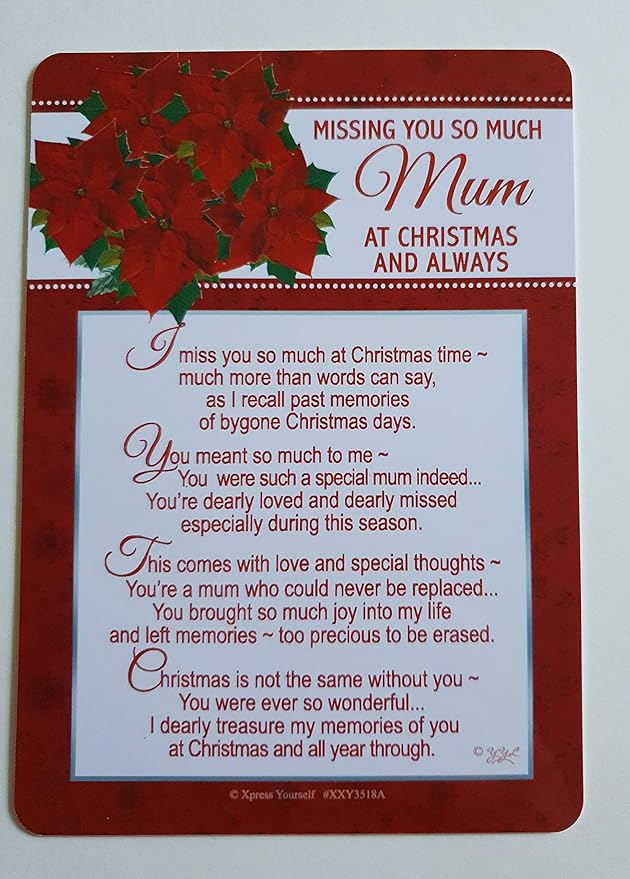 MISSING YOU SO MUCH
Mum
AT CHRISTMAS
AND ALWAYS
I miss you so much at Christmas time ~
much more than words can say,
as I recall past memories
of bygone Christmas days.
You meant so much to me ~
You were such a special mum indeed...
You're dearly loved and dearly missed
especially during this season.
This comes with love and special thoughts ~
You're a mum who could never be replaced...
You brought so much joy into my life
and left memories ~ too precious to be erased.
Christmas is not the same without you ~
You were ever so wonderful...
I dearly treasure my memories of you
at Christmas and all year through.
©
© Xpress Yourself #XXY3518A